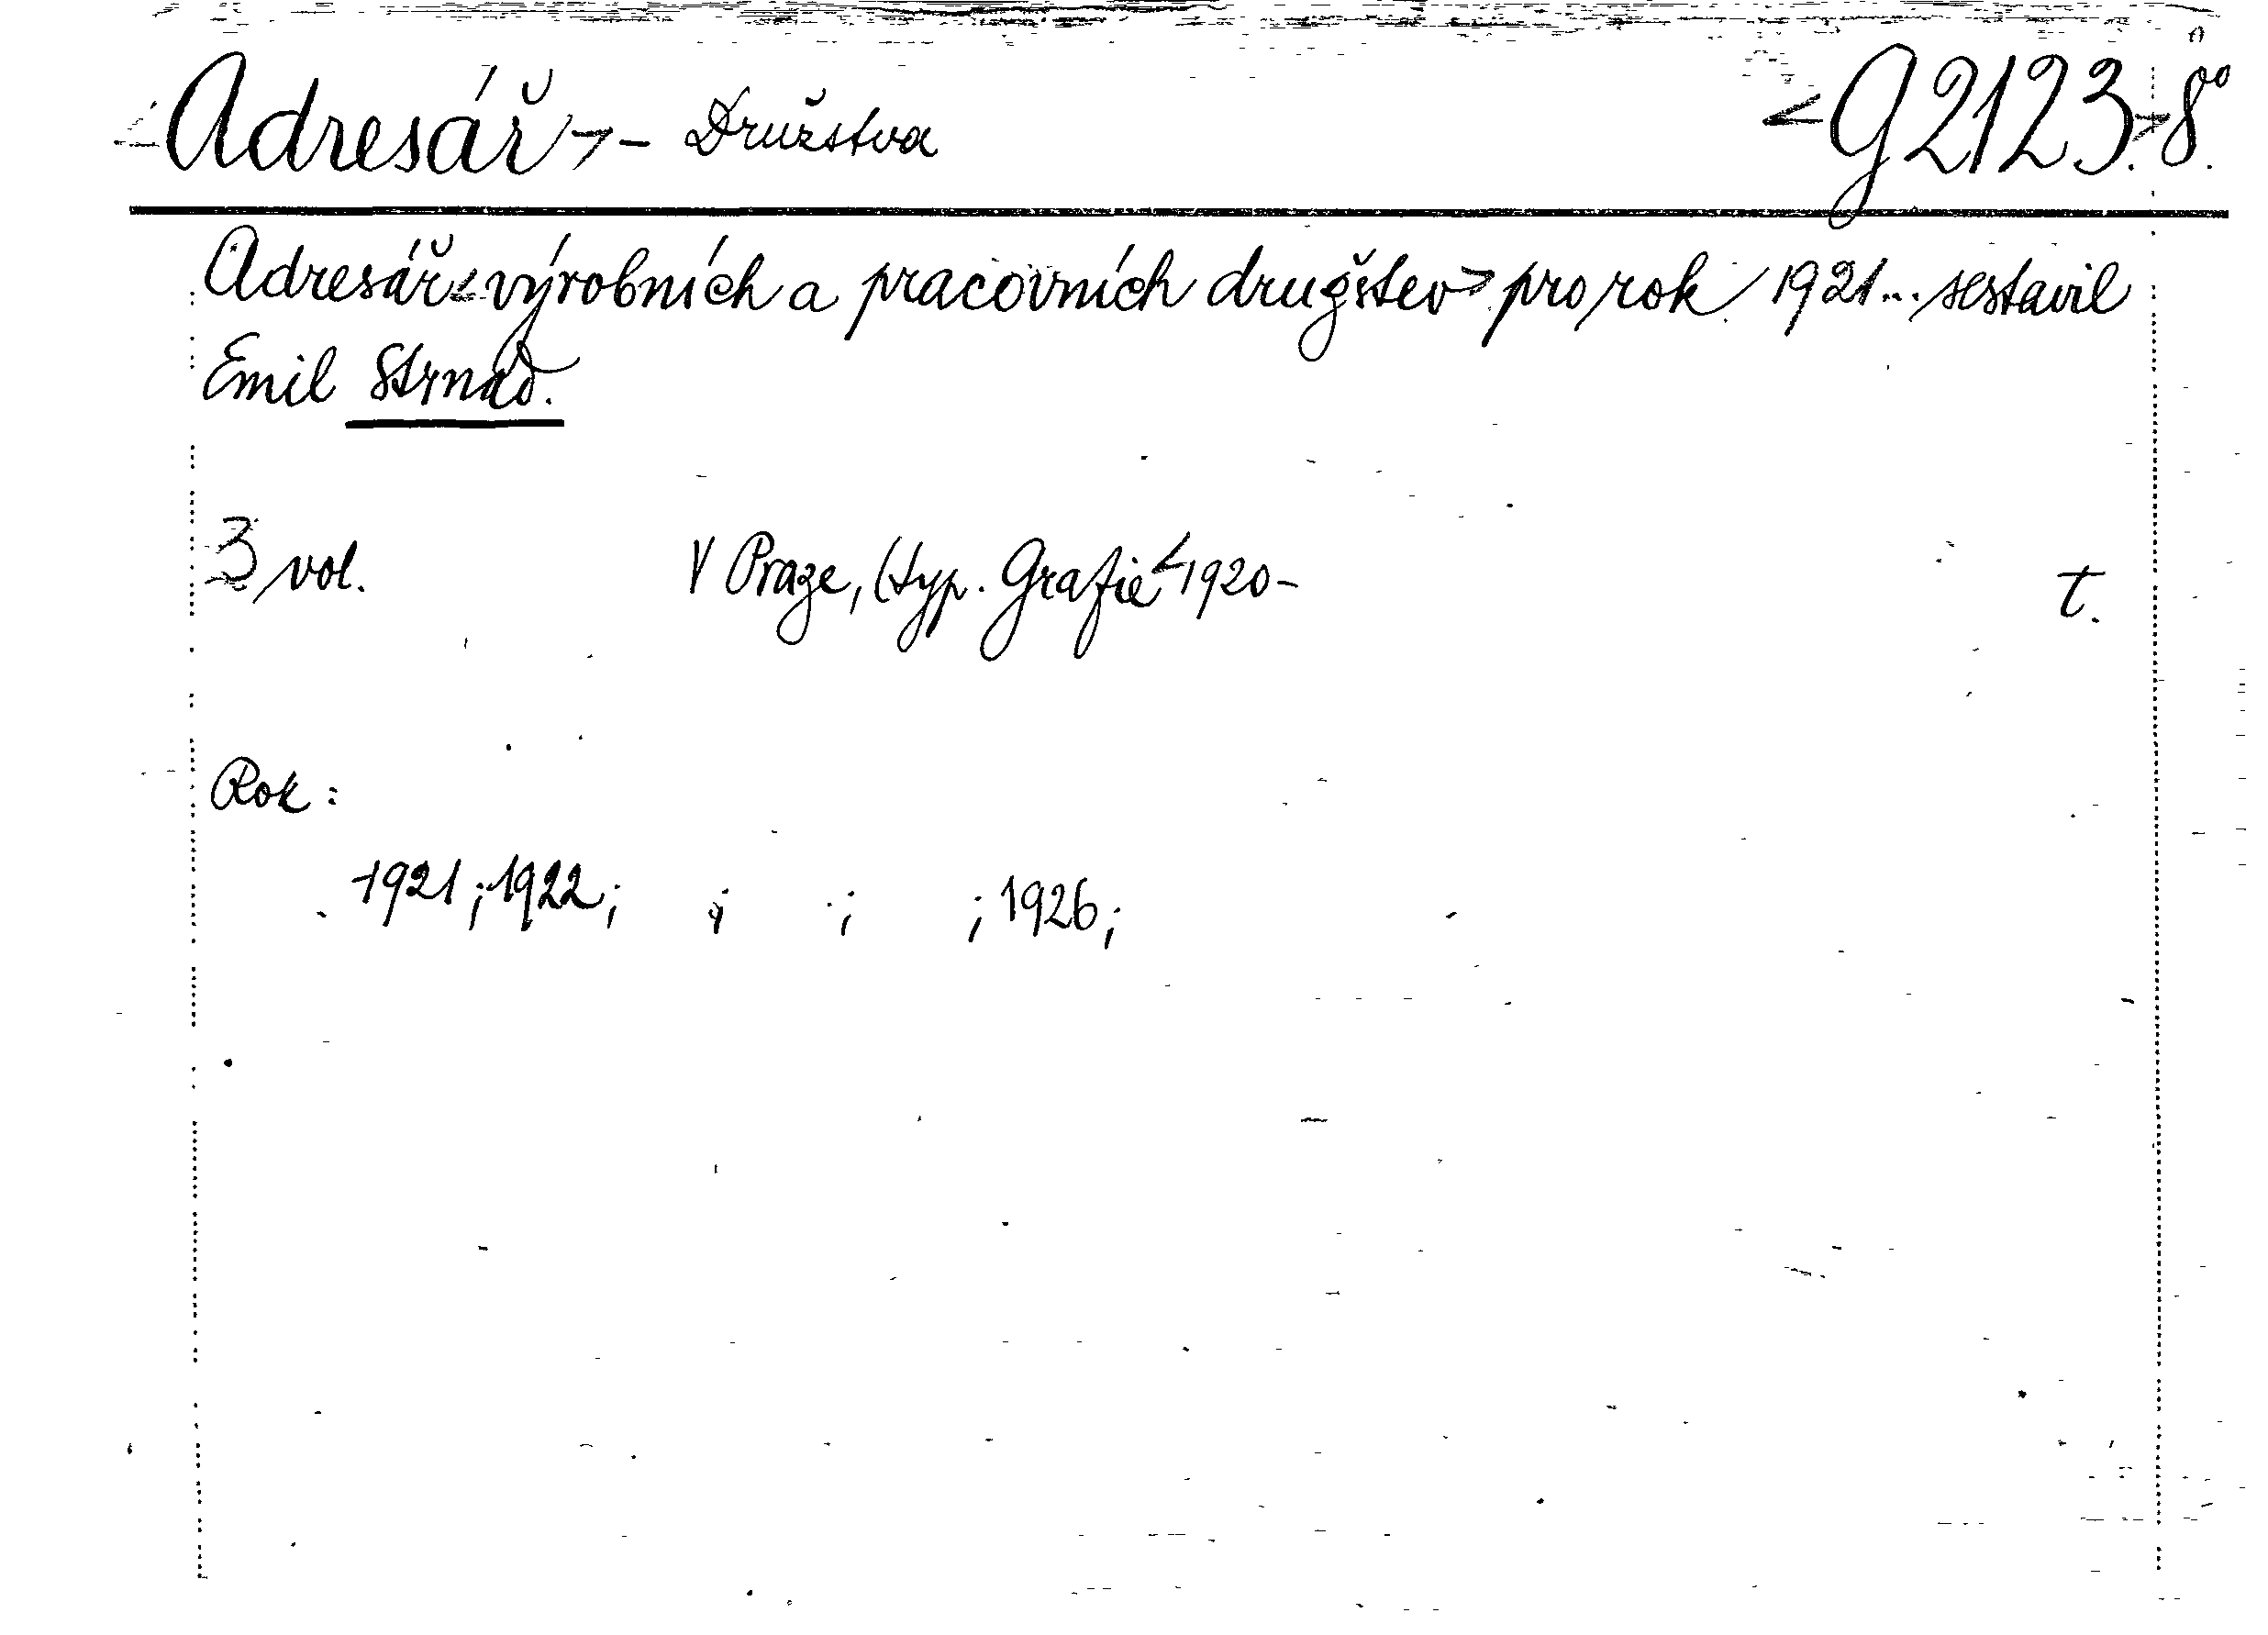 <Adresář> – Družstva <G 2123.> 8°.
Adresář <výrobních a pracovních družstev> pro rok 1921... sestavil
Emil Strnad.
3 vol. V Praze, (typ. Grafie < 1920– t.
Rok:
1921; 1922; ; ; ; 1926;